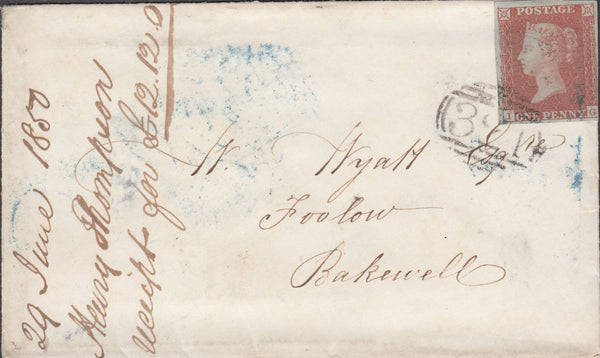 POSTAGE
ONE PENNY
I G
W Wyatt Esqre
Foolow
Bakewell
29 June 1850
Henry Thompson
receipt for £12.12.0